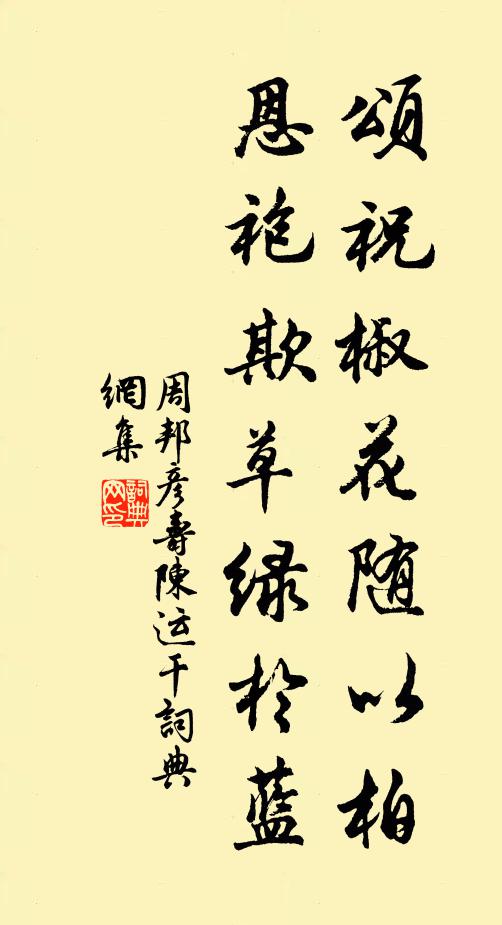 頌祝椒花随以柏
恩袍欺草緑於藍
周邦彦壽陳运干詞典
網集
詞典
网印